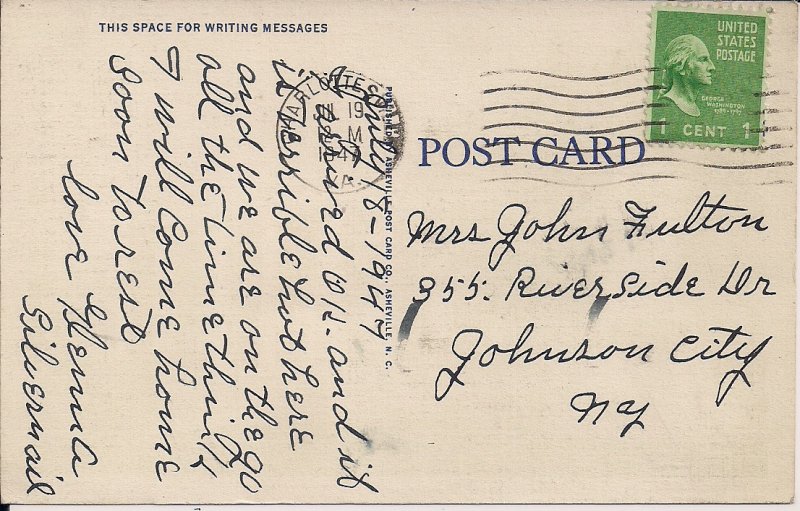 THIS SPACE FOR WRITING MESSAGES
July 18-1947
arrived O.K. and it
is terrible hot here
and we are on the go
all the time think
I will come home
soon to rest
love
Silvernail
CHARLOTTESVILLE
JUL 19
M
1947
VA.
PUBLISHED BY ASHEVILLE POST CARD CO., ASHEVILLE, N. C.
UNITED
STATES
POSTAGE
GEORGE
WASHINGTON
1789-1797
1 CENT 1
POST CARD
Mrs John Fulton
355 Riverside Dr
Johnson City
NY